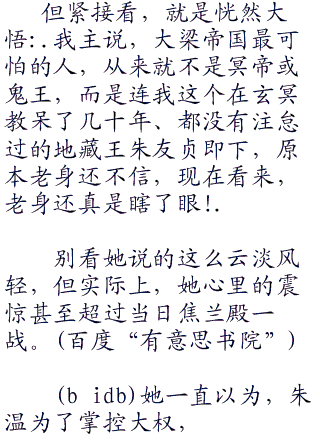 但紧接着，就是恍然大
悟:.我主说，大梁帝国最可
怕的人，从来就不是冥帝或
鬼王，而是连我这个在玄冥
教呆了几十年、都没有注怠
过的地藏王朱友贞即下，原
本老身还不信，现在看来，
老身还真是瞎了眼!.
别看她说的这么云淡风
轻，但实际上，她心里的震
惊甚至超过当日焦兰殿一
战。(百度“有意思书院”)
(b idb)她一直以为，朱
温为了掌控大权，